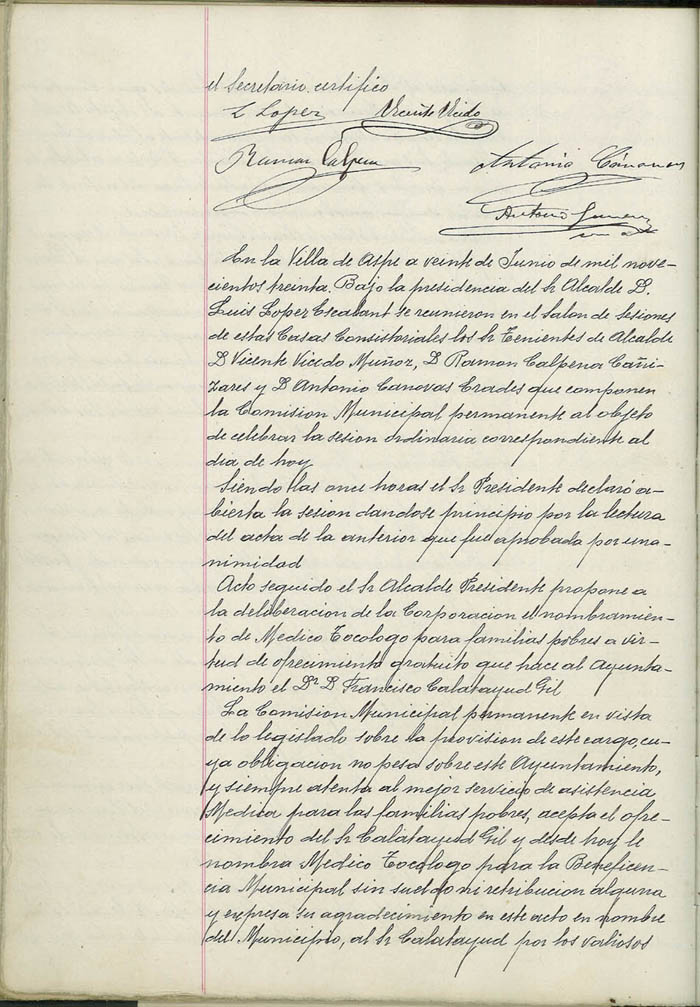 el Secretario certifico
L Lopez Vicente Vicedo
Ramon Calpena Antonio Cánovas
Antonio
En la Villa de Aspe a veinte de Junio de mil nove-
cientos treinta. Bajo la presidencia del Sr Alcalde D.
Luis Lopez Escalant se reunieron en el Salon de Sesiones
de estas Casas Consistoriales los Sr Tenientes de Alcalde
D Vicente Vicedo Muñoz, D Ramon Calpena Cañi-
zares y D Antonio Canovas Erades que componen
la Comision Municipal permanente al objeto
de celebrar la sesion ordinaria correspondiente al
dia de hoy
Siendo las once horas el Sr Presidente declaró a-
bierta la sesion dandose principio por la lectura
del acta de la anterior que fue aprobada por una-
nimidad
Acto seguido el Sr Alcalde Presidente propone a
la deliberacion de la Corporacion el nombramien-
to de Medico Tocologo para familias pobres a vir-
tud de ofrecimiento gratuito que hace al Ayunta-
miento el Dr D Francisco Calatayud Gil
La Comision Municipal permanente en vista
de lo legislado sobre la provision de este cargo, cu-
ya obligacion no pesa sobre este Ayuntamiento,
y siempre atenta al mejor servicio de asistencia
Medica para las familias pobres, acepta el ofre-
cimiento del Sr Calatayud Gil y desde hoy le
nombra Medico Tocologo para la Beneficen-
cia Municipal sin sueldo ni retribucion alguna
y expresa su agradecimiento en este acto en nombre
del Municipio, al Sr Calatayud por los valiosos